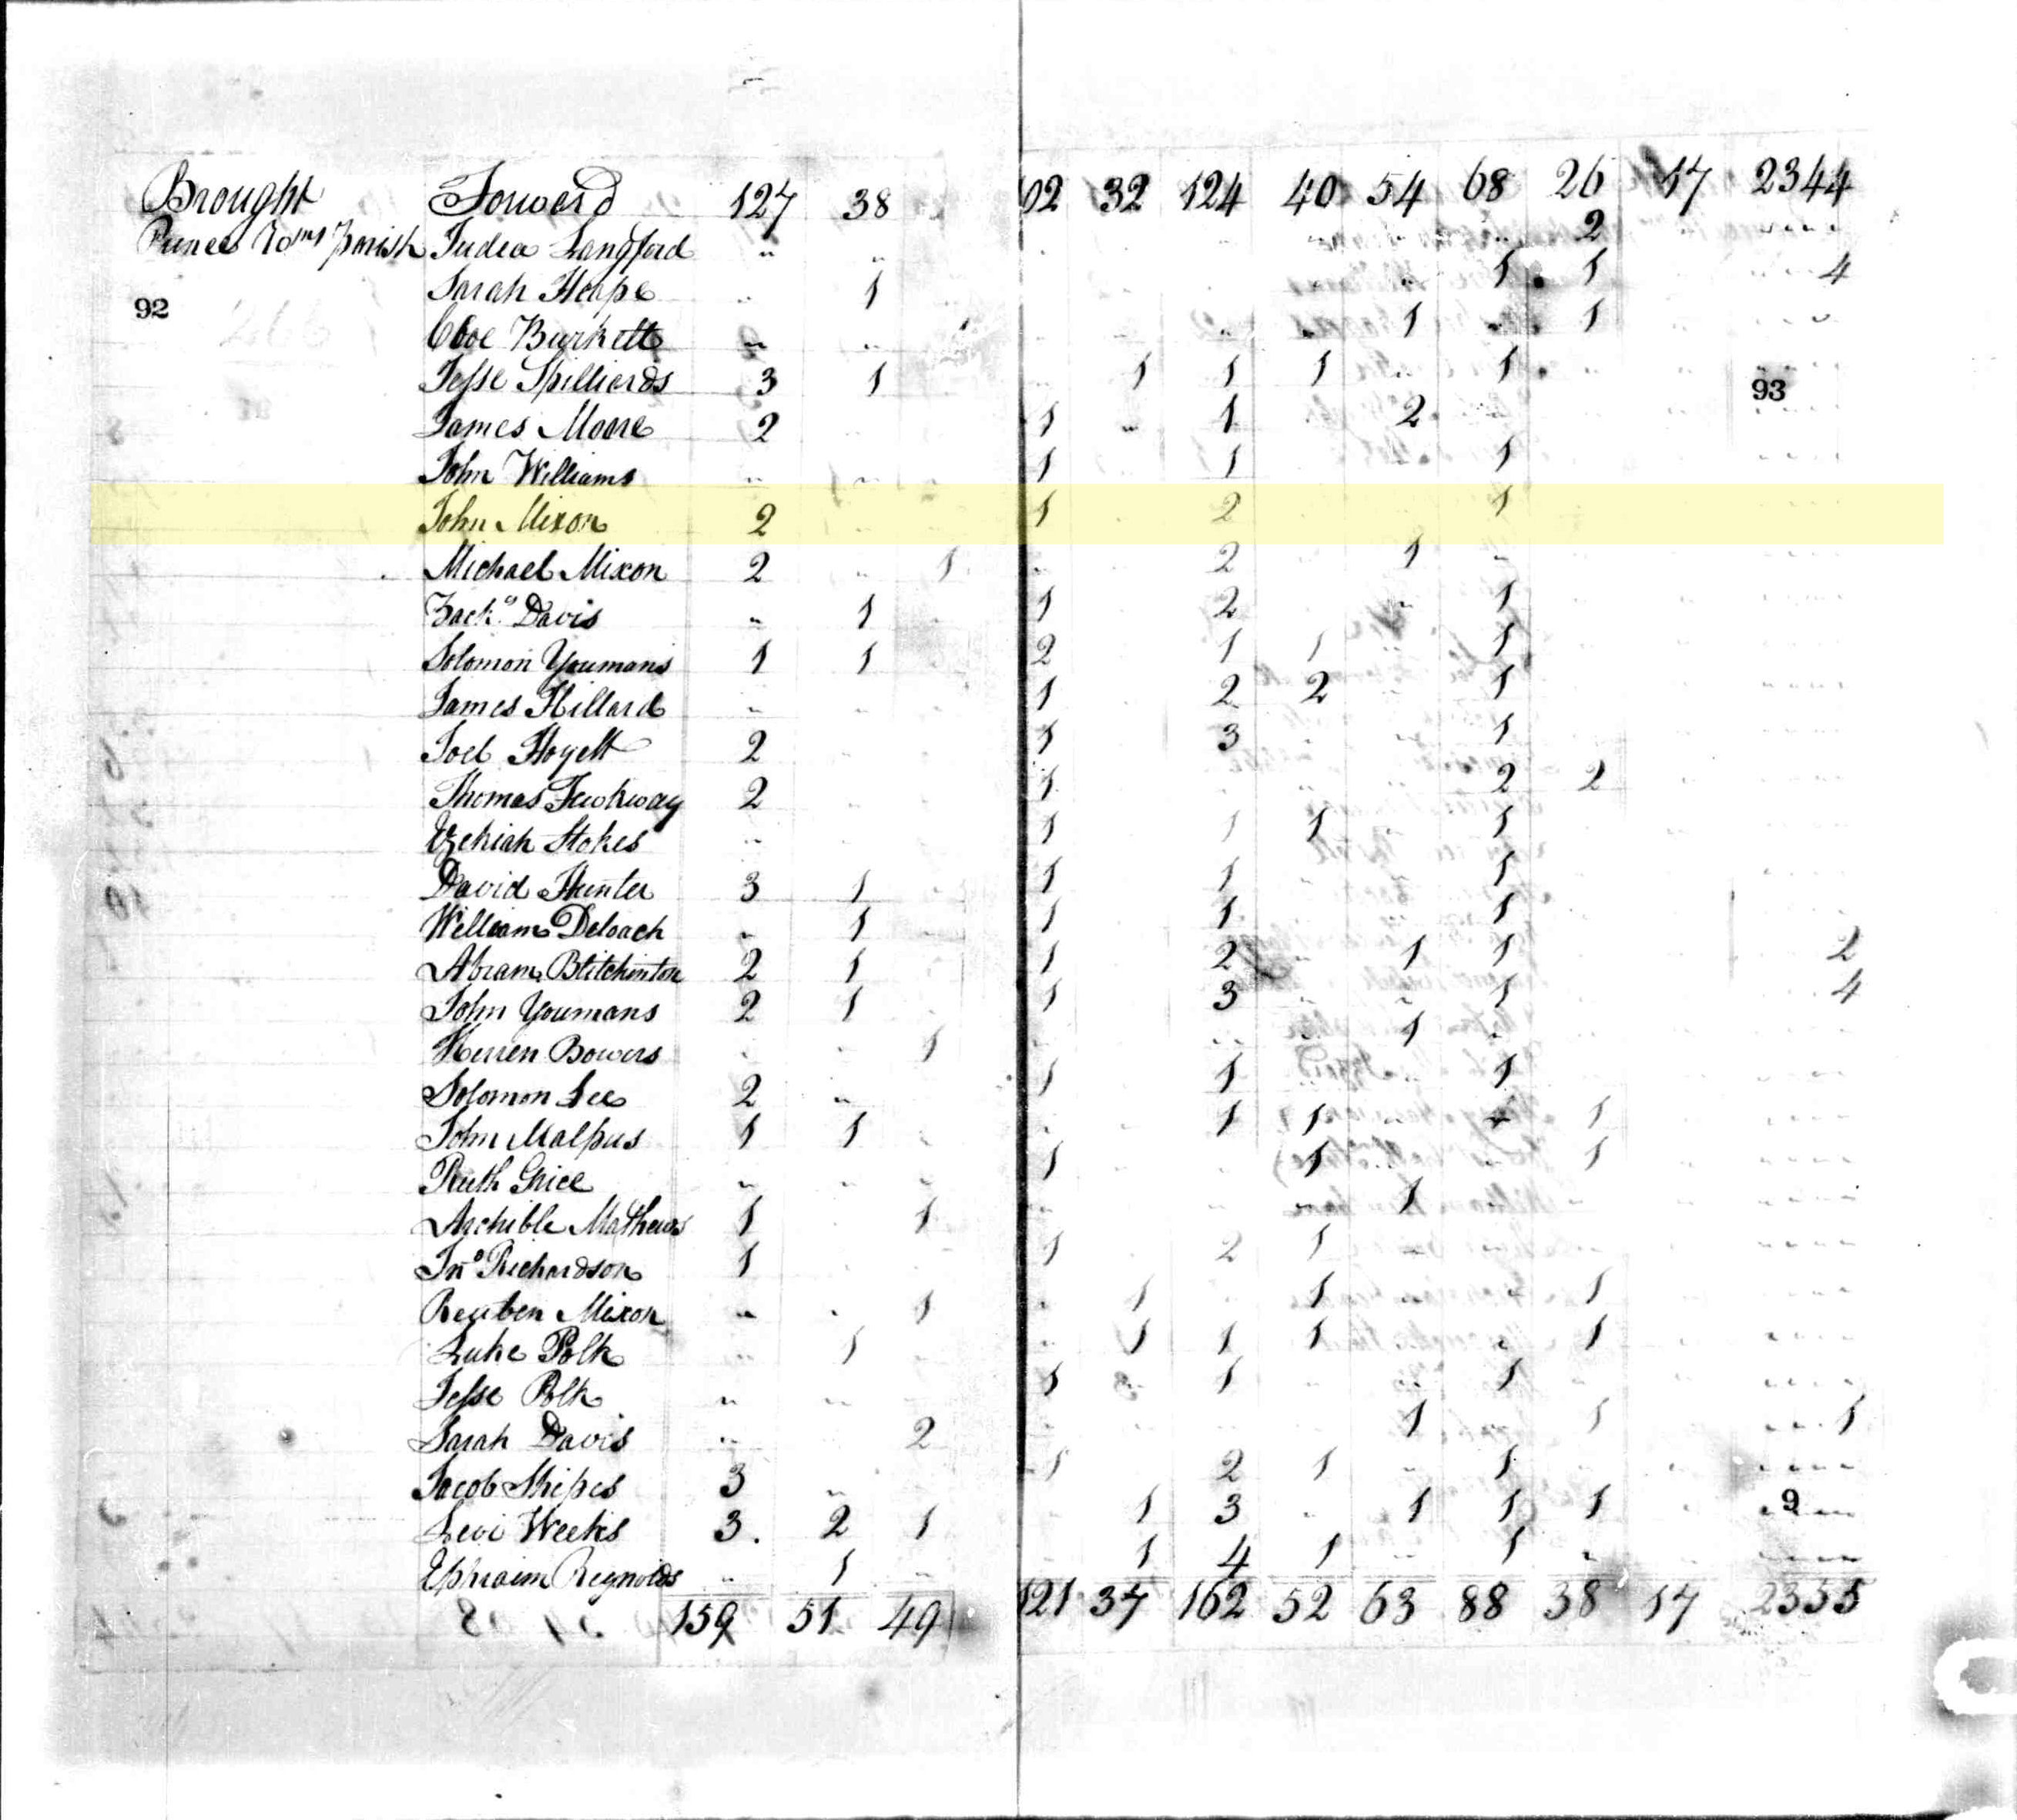 Brought Forword 127 38 102 32 124 40 54 68 26 17 2344
Prince Wms Parish Judea Langford " " 2
92 Sarah Hoape 1 1 1 4
Cloe Burkett " " 1 1
Jesse Spilliards 3 1 1 1 1 1
93
James Moore 2 1 1 2
John Williams 1 1 1
John Mixon 2 1 2 1
Michael Mixon 2 1 2 1
Zach. Davis " 1 1 2 1
Solomon Youmans 1 1 2 1 1 1
James Hillard 1 2 2 1
Joel Hogett 2 1 3 1
Thomas 2 1 2 2
Ezekiah Stokes 1 1 1 1
David Hunter 3 1 1 1 1
William Deloach " 1 1 1 1
Abram Blitchinton 2 1 1 2 1 1 2
John Youmans 2 1 1 3 1 4
Herren Bowers 1 1
Solomon Lee 2 " 1 1 1
John Malpus 1 1 1 1 1
Ruth Grice " " " 1 1 1
Archible Mathews 1 1 1
Jno Richardson 1 1 2 1
Reuben Mixon " 1 1 1 1
Luke Polk 1 1 1 1 1
Jesse Polk " " 1 1 1
Sarah Davis 2 1 1 1
Jacob Shipes 3 1 2 1 1
Levi Weekes 3 2 1 1 3 1 1 1 9
Ephraim Reynolds " 1 1 4 1 1
159 51 49 121 37 162 52 63 88 38 17 2355